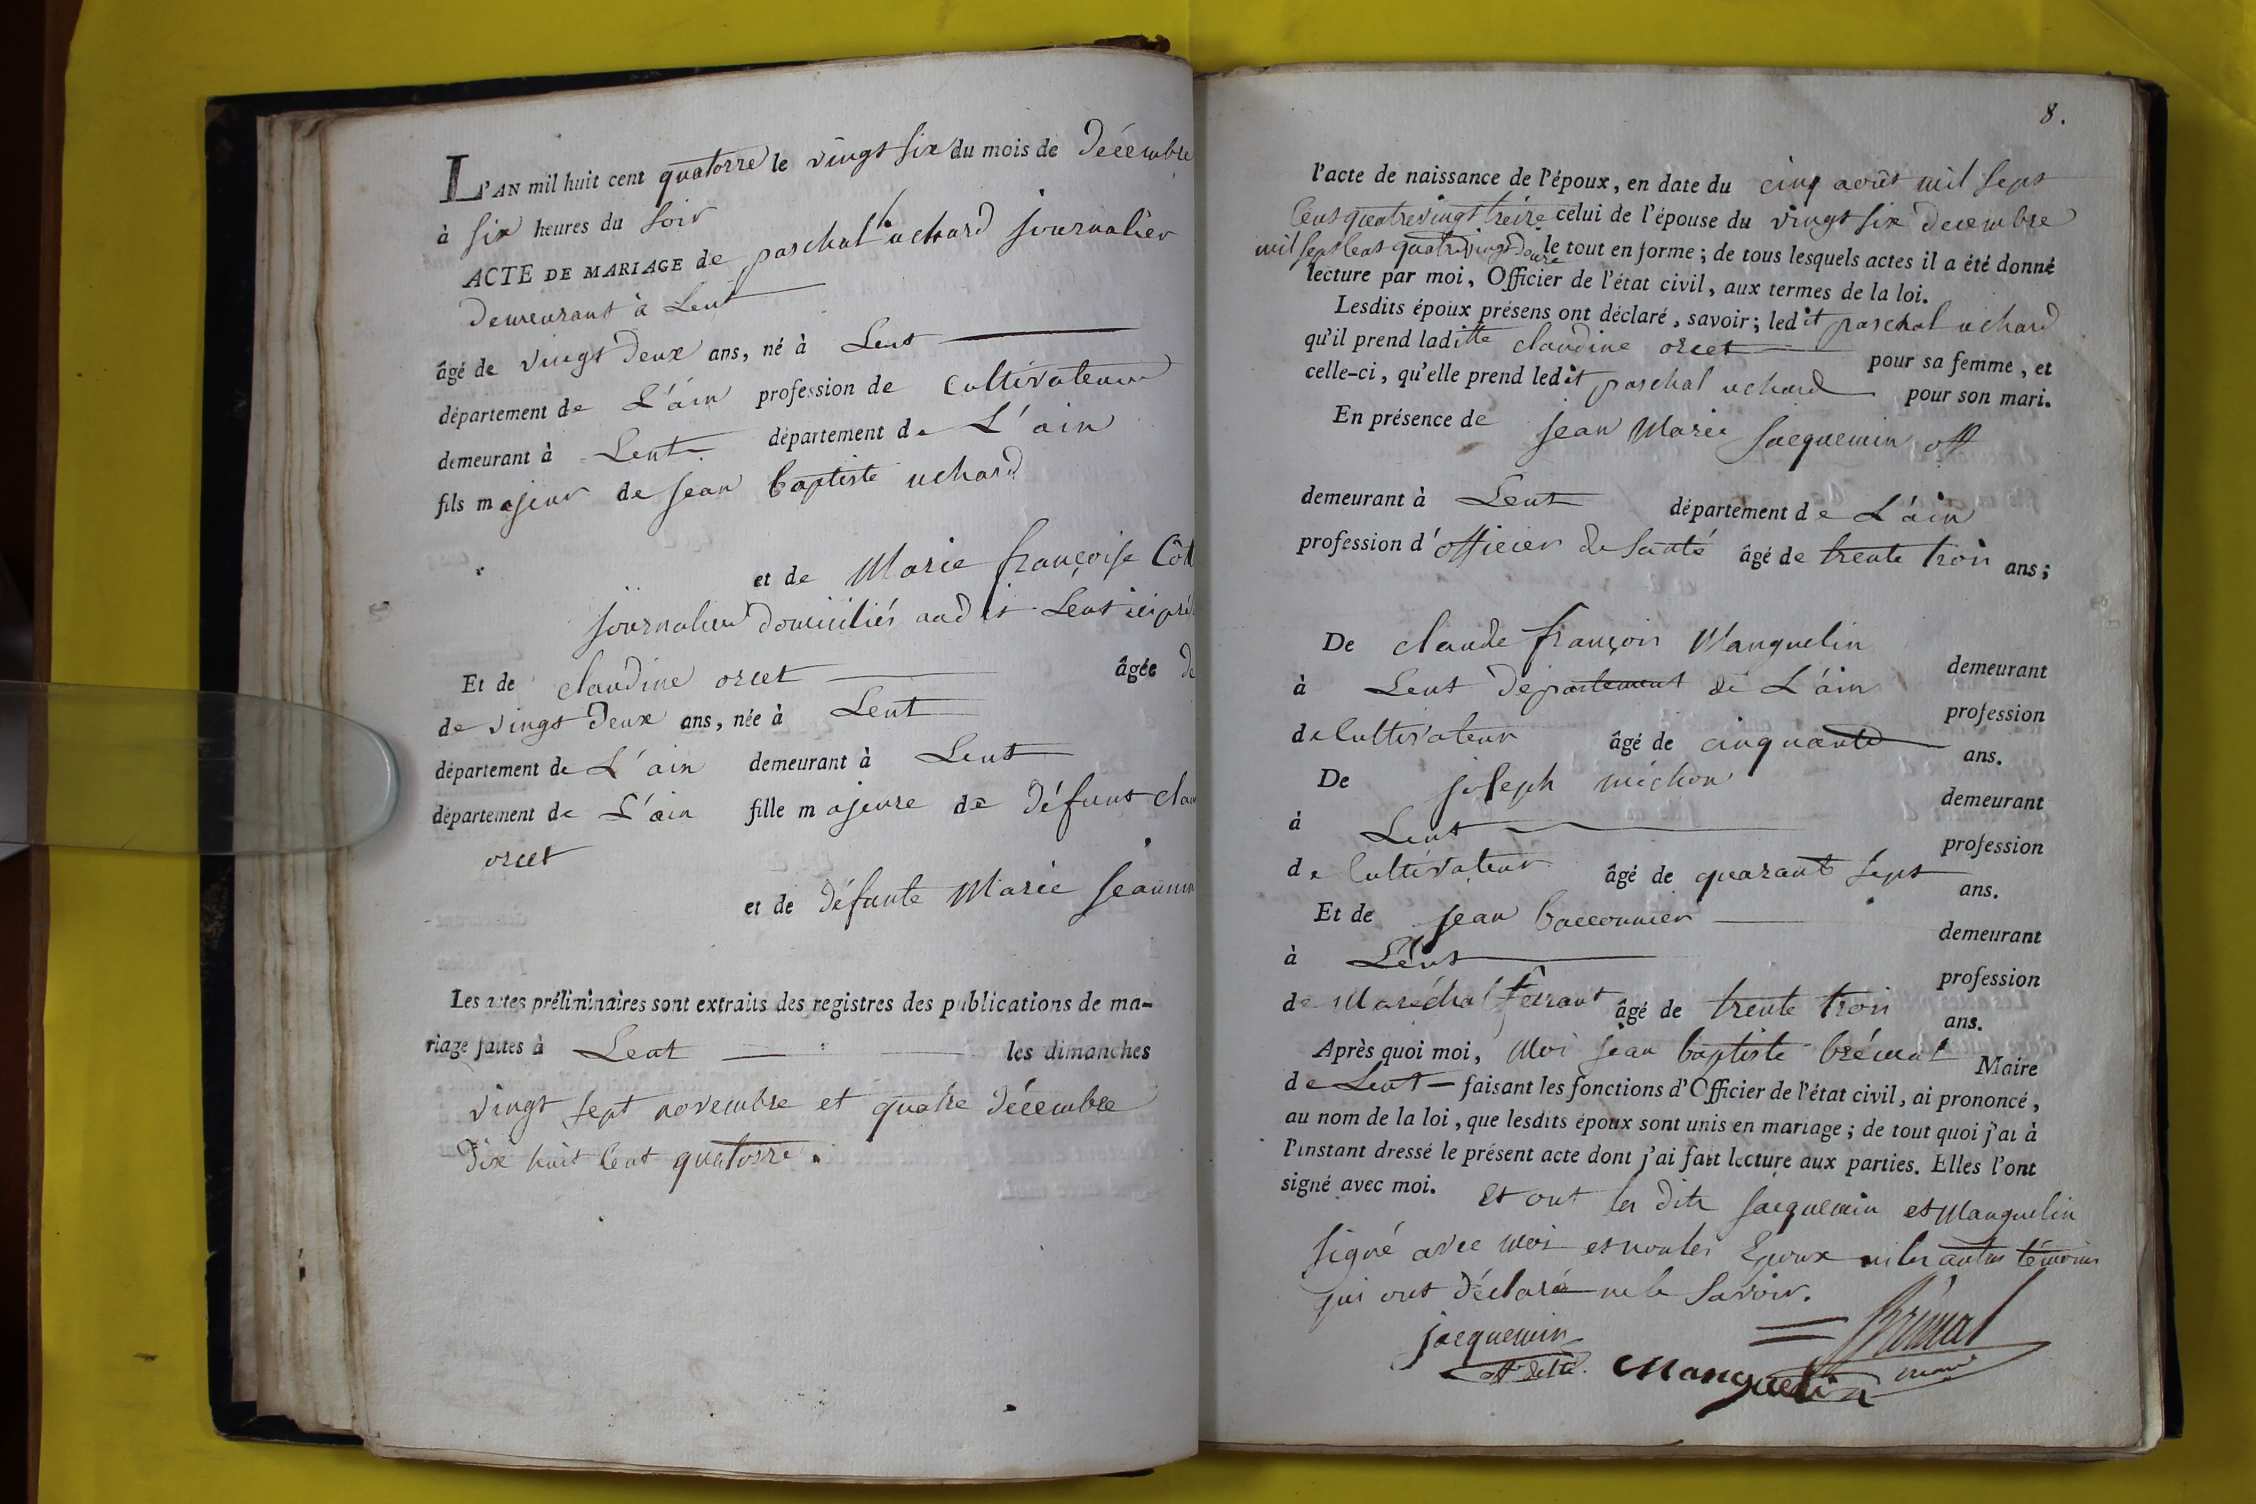 L'AN mil huit cent quatorze le vingt six du mois de décembre
à six heures du soir
ACTE DE MARIAGE de paschal uchard journalier
demeurant à Lent
âgé de vingt deux ans, né à Lent
département de L'ain profession de Cultivateur
demeurant à Lent département de L'ain
fils majeur de jean baptiste uchard
et de Marie françoise
journaliers domiciliés audit Lent ici
Et de claudine orcet âgée de
de vingt deux ans, née à Lent
département de L'ain demeurant à Lent
département de L'ain fille majeure de défunt
orcet
et de défunte Marie
Les actes préliminaires sont extraits des registres des publications de ma-
riage faites à Lent les dimanches
vingt sept novembre et quatre décembre
dix huit Cent quatorze.
8.
l'acte de naissance de l'époux, en date du cinq août mil sept
Cent quatrevingt treize celui de l'épouse du vingt six decembre
mil sept Cent quatrevingt douze le tout en forme ; de tous lesquels actes il a été donné
lecture par moi, Officier de l'état civil, aux termes de la loi.
Lesdits époux présens ont déclaré, savoir ; ledit paschal uchard
qu'il prend laditte claudine orcet pour sa femme, et
celle-ci, qu'elle prend ledit paschal uchard pour son mari.
En présence de jean Marie jacquemin off
demeurant à Lent département de L'ain
profession d'officier de santé âgé de trente trois ans ;
De claude françois Manguelin demeurant
à Lent département de L'ain profession
de Cultivateur âgé de cinquante ans.
De joseph michon demeurant
à Lent profession
de Cultivateur âgé de quarante sept ans.
Et de jean bacconnier demeurant
à Lent profession
de Maréchal ferrant âgé de trente trois ans.
Après quoi moi, Moi jean baptiste brémal Maire
de Lent — faisant les fonctions d'Officier de l'état civil, ai prononcé,
au nom de la loi, que lesdits époux sont unis en mariage ; de tout quoi j'ai à
l'instant dressé le présent acte dont j'ai fait lecture aux parties. Elles l'ont
signé avec moi. Et ont les dits jacquemin et Manguelin
signé avec moi et non les Epoux ni les autres témoins
qui ont déclaré ne le savoir.
jacquemin Brémal
off de sté. Manguelin maire